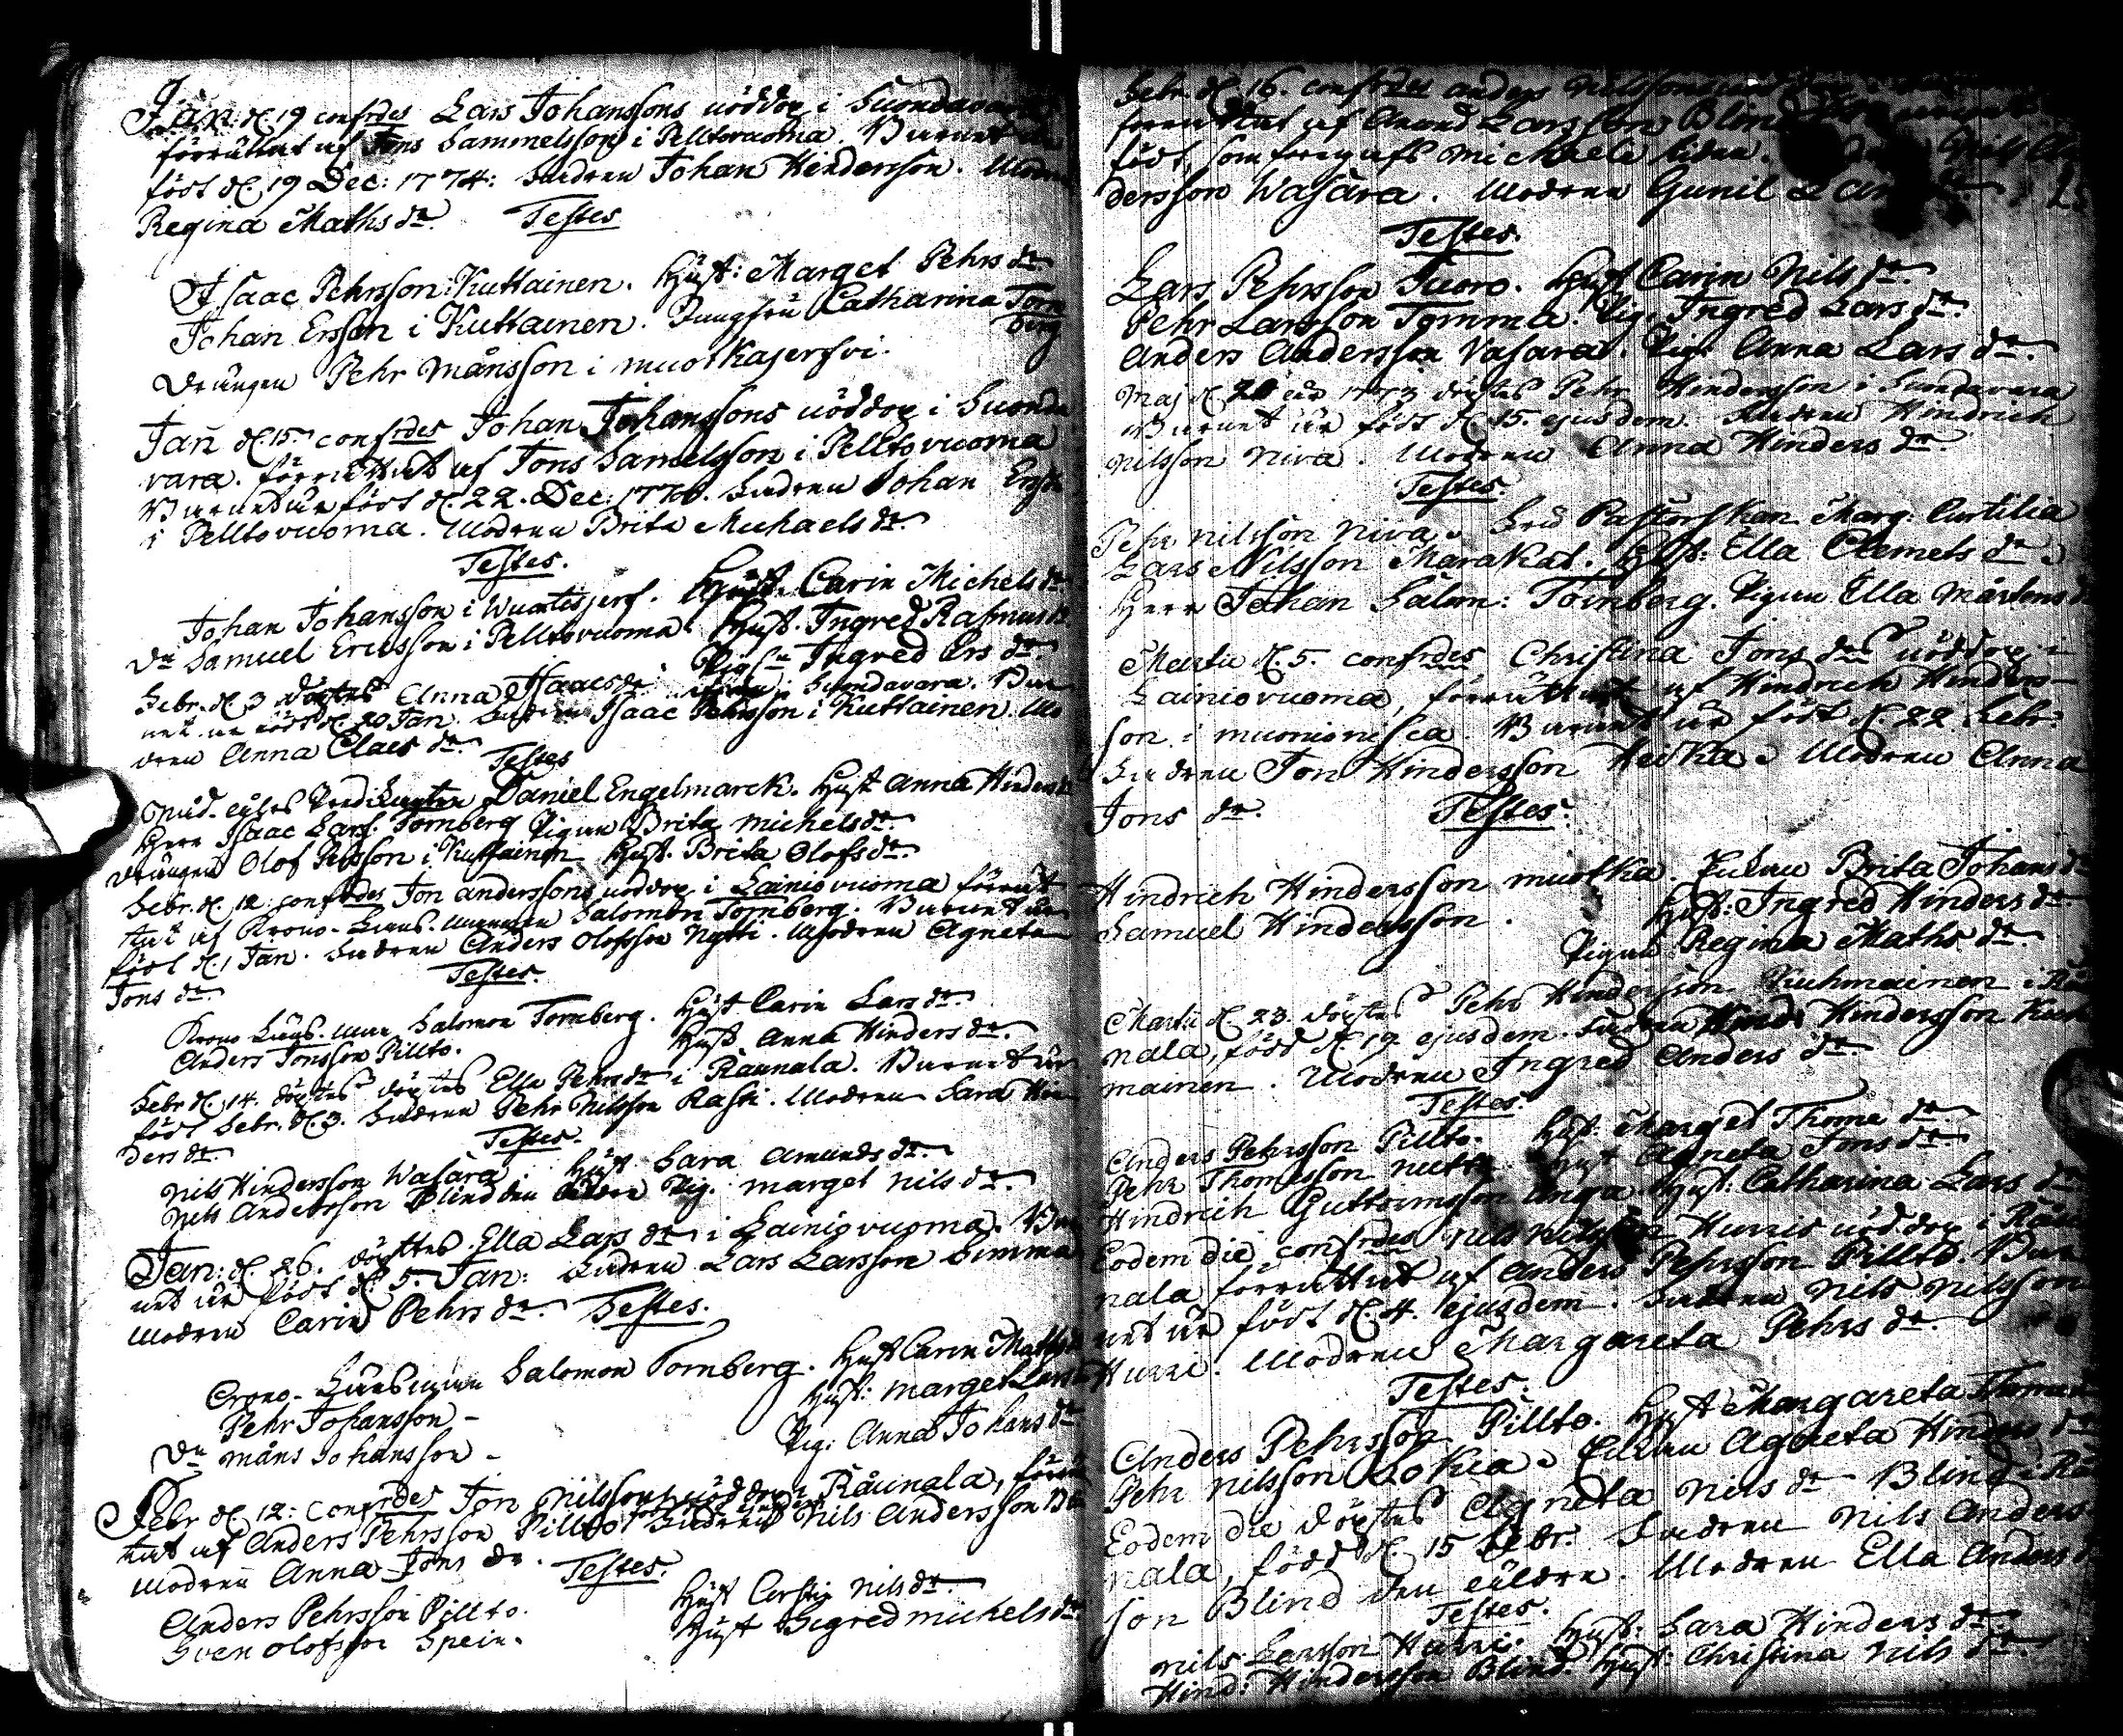 Jan: d. 19 confrdes Lars Johanssons nöddop i Suondavara
förrättat af Jöns Sammelsson i Pelltovuoma. Barnet är
födt d. 19 Dec: 1774: Fadren Johan Hindersson. Modren
Regina Mathsdr. Testes
Isaac Pehrsson Kuttainen. Hust: Marget Pehrs dr.
Johan Ersson i Kuttainen. Jungfru Catharina Torn
berg
Drängen Pehr Månsson i muotkajerfvi.
Jan d. 15. confrdes Johan Johanssons nöddop i Suonda
vara. förrättat af Jöns Samelsson i Pelltovuoma
Barnet är födt d. 22. Dec: Fadren Johan Ers
i Pelltovuoma. Modren Brita Michaels dr.
Testes.
Johan Johansson i Wuontisjerf. Hust. Carin Michels dr
Dn Samuel Ericsson i Pelltovuoma. Hust. Ingred Rasmus
Pig Ingred Ers dr.
Febr. d. 3 döptes Anna Isaacs dr i Suondavara. Bar
net är födt d. 20 Jan. Fadren Isaac Pehrsson i Kuttainen. Mo
dren Anna Claes dr. Testes
Daniel Engelmarck. Hust Anna Hinders
Herr Isaac Lars. Tornberg Pigan Brita Michels dr.
Drängen Olof Persson i Kuttainen Hust. Brita Olofs dr.
Febr. d. 12. confrdes Jon Anderssons nöddop i Lainiovuoma förrät
tat af Krono-Länsmannen Salomon Tornberg. Barnet är
födt d. 1 Jan. Fadren Anders Olofsson Nutti. Modren Agneta
Jons dr. Testes.
Krono Länsman Salomon Tornberg. Hust Carin Lars dr.
Anders Jonsson Pillto. Hust. Anna Hinders dr.
Febr d. 14. döptes döptes Ella Pehrs dr i Råunala. Barnet är
födt Febr. d. 3. Fadren Pehr Nilsson Rasti. Modren Sara Hin
ders dr. Testes.
Nils Hindersson Wasara. Hust Sara Amunds dr.
Nils Andersson Blind den äldre Pig. Marget Nils dr.
Jan: d. 26. döptes Ella Lars dr i Lainiovuoma. Bar
net är födt d. 5. Jan: Fadren Lars Larsson Simma
Modren Carin Pehrs dr. Testes.
Crono-Länsman Salomon Tornberg. Hust Carin Maths
Pehr Johansson - Hust: Marget Lars
Dn Måns Johansson - Pig: Anna Johans dr
Febr d. 12: Confrdes Jon Nilssons nöddop i Råunala, förrät
tat af Anders Pehrsson Pillto Fadren Nils Andersson Bl
Modren Anna Jons dr. Testes.
Anders Pehrsson Pillto. Hust Cerstin Nils dr.
Sven Olofsson Spein. Hust Sigred Michels dr.
Febr. d. 16. confrdes Anders Nilssons
förrättat af Amund Larsson Blind
födt som föregafs Michaelis tiden. Nils An
dersson Wasara. Modren Gunil Lars
Testes.
Lars Pehrsson Tuoro. Hust Carin Nils dr.
Pehr Larsson Tomma. Pig. Ingred Lars dr.
Anders Andersson Vasara. Pig: Anna Lars dr.
Maj d. 20 1773 döptes Pehr Hindersson i Suondavara
Barnet är födt d. 15. ejusdem. Fadren Hindrich
Nilsson Niva. Modren Anna Hinders dr.
Testes.
Pehr Nilsson Niva. Fru Pastorskan Marg: Curtilia
Lars Nilsson Marakat. Hust: Ella Clemets dr.
Herr Johan Salom: Tornberg. Pigan Ella Mårtens d
Martii d. 5. confrdes Christina Jons drs nöddop i
Lainiovuoma, förrättat af Hindrich Hinders-
son i muonionisca. Barnet är födt d. 22 Febr:
Fadren Jon Hindersson Heikka. Modren Anna
Jons dr. Testes.
Hindrich Hindersson muotka. Enkan Brita Johans dr
Samuel Hindersson. Hust: Ingred Hinders dr
Pigan Regina Maths dr.
Martii d. 23. döptes Pehr Hindersson Kuhmainen i Råu
nala, född d. 19 ejusdem. Fadren Hind: Hindersson Kuh
mainen. Modren Ingred Anders dr.
Testes.
Anders Pehrsson Pillto. Hust: Marget Thome dr.
Pehr Thomesson Nutti. Hust Agneta Jons dr
Hindrich Guttormsson Unga. Hust: Catharina Lars dr
Eodem die confrdes Nils Nilsson Hurris nöddop i Råu
nala förrättat af Anders Pehrsson Pillto. Bar
net är födt d. 4. ejusdem. Fadren Nils Nilsson
Hurri. Modren Margareta Pehrs dr.
Testes.
Anders Pehrsson Pillto. Hust Margareta Thome
Pehr Nilsson Enkan Agneta Hinders dr
Eodem die döptes Agneta Nils dr Blind i Råu
nala, född d. 15 Febr. Fadren Nils Anders
son Blind den äldre. Modren Ella Anders d
Testes.
Nils Larsson Hurri. Hust: Sara Hinders dr
Hind: Hindersson Blind. Hust: Christina Nils dr.